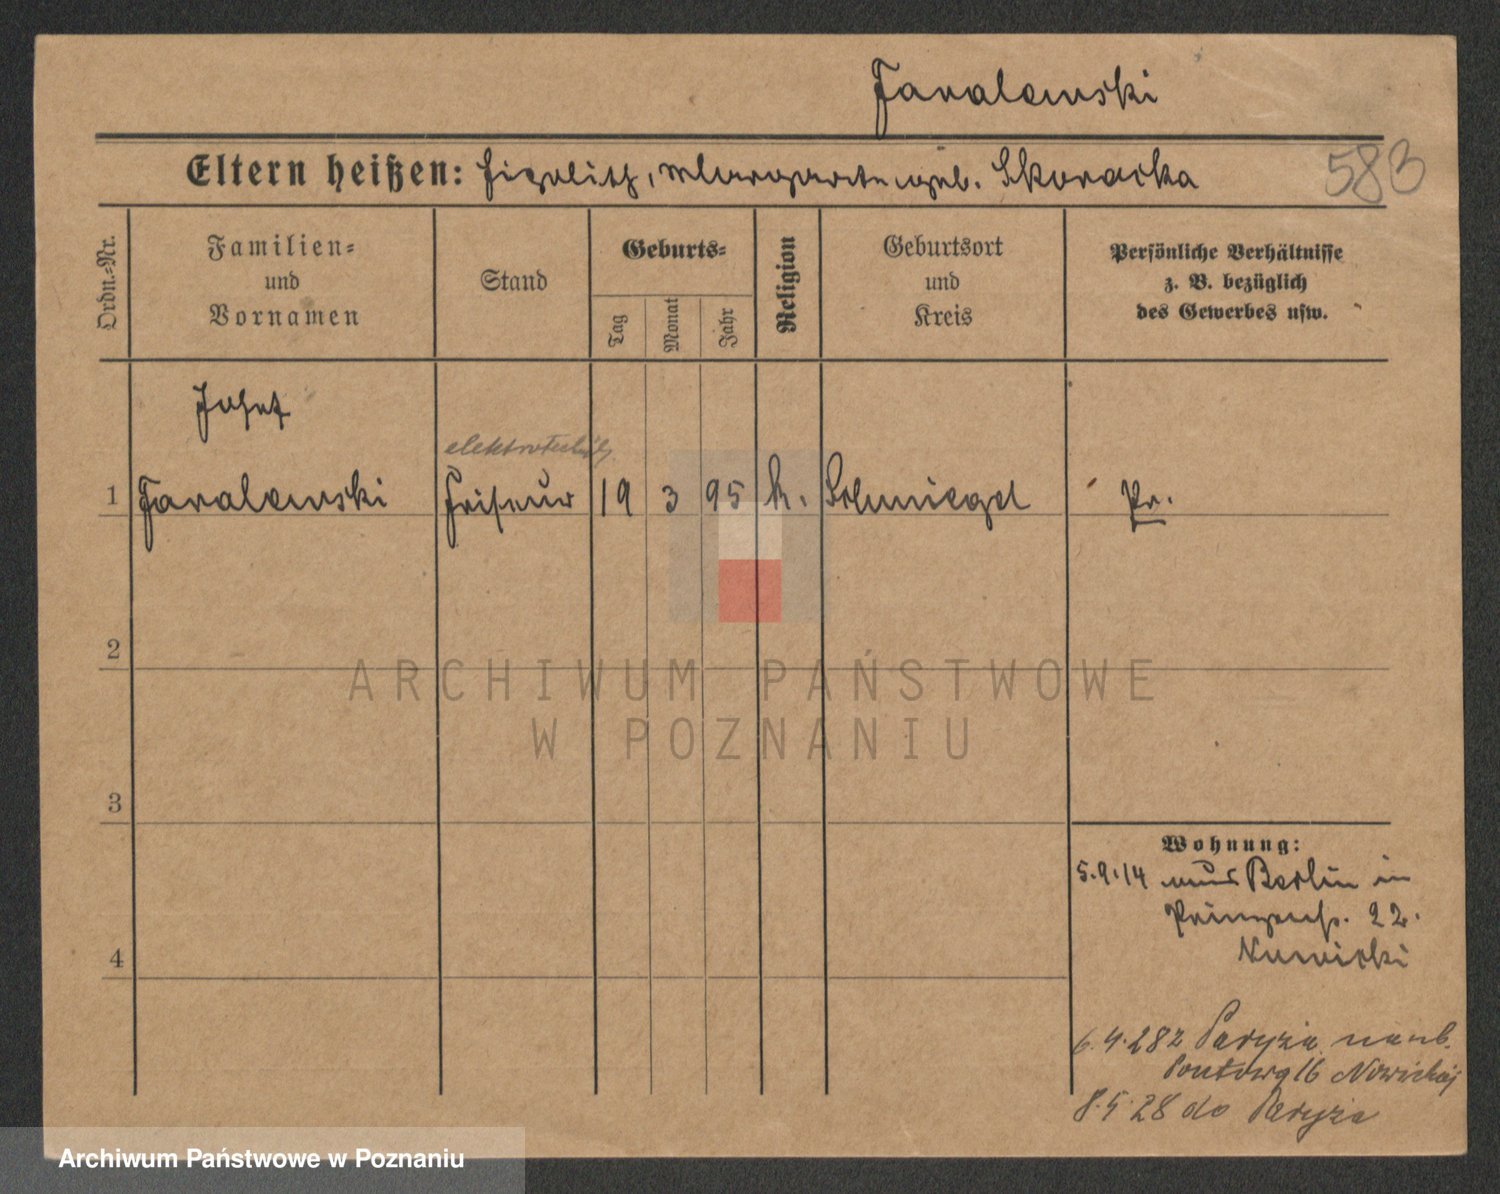 Javalewski
583
Eltern heißen: Hipolith, Margarete geb. Skoracka
Ordn.-Nr.
Familien-
und
Vornamen
Stand
Geburts-
Tag
Monat
Jahr
Religion
Geburtsort
und
Kreis
Persönliche Verhältnisse
z. B. bezüglich
des Gewerbes usw.
Josef
elektrotechnik
1 Javalewski Friseur 19 3 95 k. Schmiegel Pr.
2
ARCHIWUM PAŃSTWOWE
W POZNANIU
3
Wohnung:
5.9.14 aus Berlin in
Prinzenstr. 22.
Nowicki
4
6.4.28 z Paryża na ub.
16 Nowickiej
8.5.28 do Paryża
Archiwum Państwowe w Poznaniu